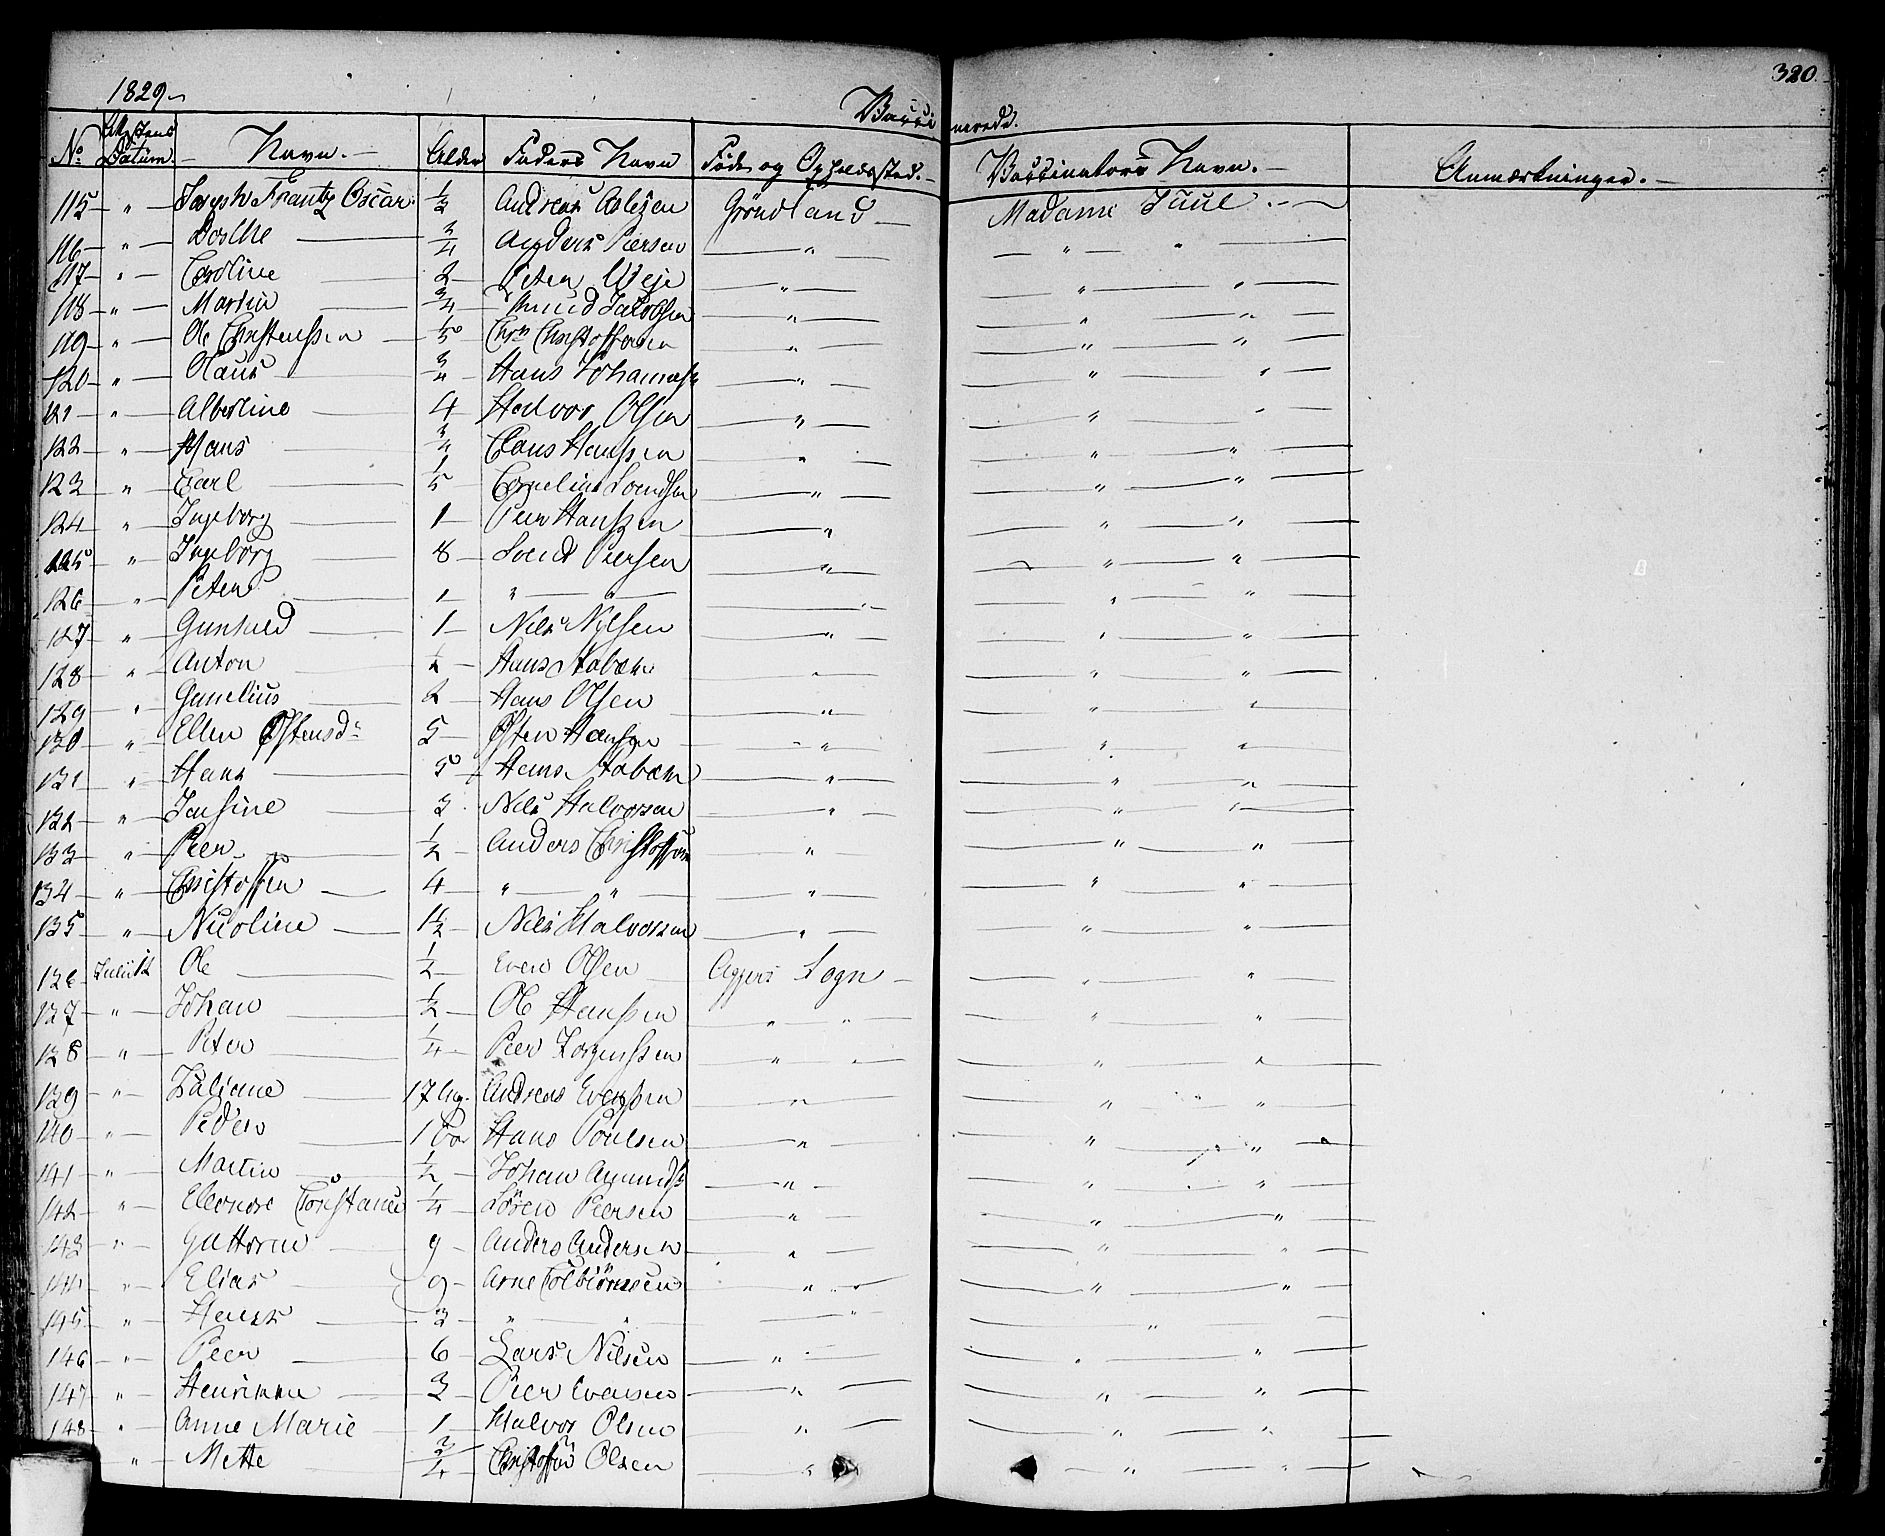 320.
1829
Vacci nerede.
No Attestens Datum. Navn. Alder Faders Navn Føde og Opholdssted. Vaccinators Navn. Anmærkninger.
115 " Joseph Frantz Oscar 1/2 Andreas Grønland Madame Juul
116 " 3/4 Anders Peersen " " "
117 " Caroline 2 Peter " " "
118 " Martin 3/4 Knud Jacobsen " " "
119 " Ole Christenssen 1/5 Chrn Christoffersen " " "
120 " Olaus 3/4 Hans Johannes " " "
121 " Albertine 4 Halvor Olsen " " "
122 " Hans 3/4 Claus Hanssen " " "
123 " Carl 1/5 Cornelius Svendsen " " "
124 " Ingeborg 1 Peer Hanssen " " "
125 " Ingeborg 8 Svend Peersen " " "
126 " Peter 1 " " " " "
127 " Gunhild 1 Nils Nilsen " " "
128 " Anton 1/2 Hans Stabæk " " "
129 " Gunelius 2 Hans Olsen " " "
130 " Ellen Østensdr 5 Østen Hansen " " "
131 " Hans 5 Hans Stabæk " " "
132 " Jensine 3 Nils Halvorsen " " "
133 " Peer 1/2 Anders Christoffersen " " "
134 " Christoffer 4 " " " " "
135 " Nicoline 1 1/2 Nils Halvorsen " " "
136 Julii 12 Ole 1/2 Even Olsen Aggers Sogn " "
137 " Johan 1/2 Ole Hanssen " " " "
138 " Peter 1/4 Peer Jorgenssen " " " "
139 " Juliane 17 Ug. Andreas Evenssen " " "
140 " Peder 1 Hans Poulsen " " "
141 " Martin 1/2 Johan Amunds " " "
142 " Eleonore Constance 1/4 Søren Peersen " " "
143 " Guttorm 9 Anders Andersen " " "
144 " Elias 9 Arne Colbiørnsen " " " "
145 " 3 " " " "
146 " Peer 6 Lars Nilsen " " "
147 " Henrikke 3 Peer Evensen " " "
148 " Anne Marie 1 Halvor Olsen " " "
" Mette 3/4 Christoffer Olsen " " "